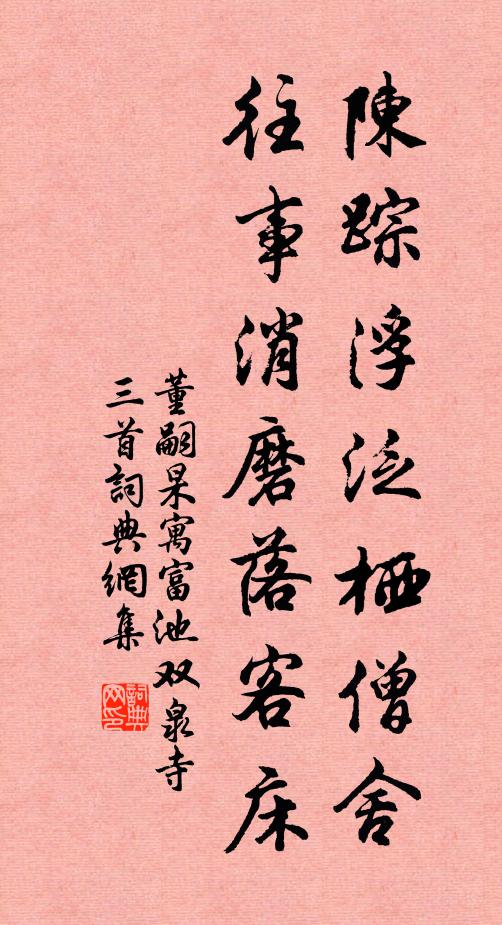 陳踪浮泛栖僧舍
往事消磨落客床
董嗣杲寓富池双泉寺
三首詞典網集
詞典网印